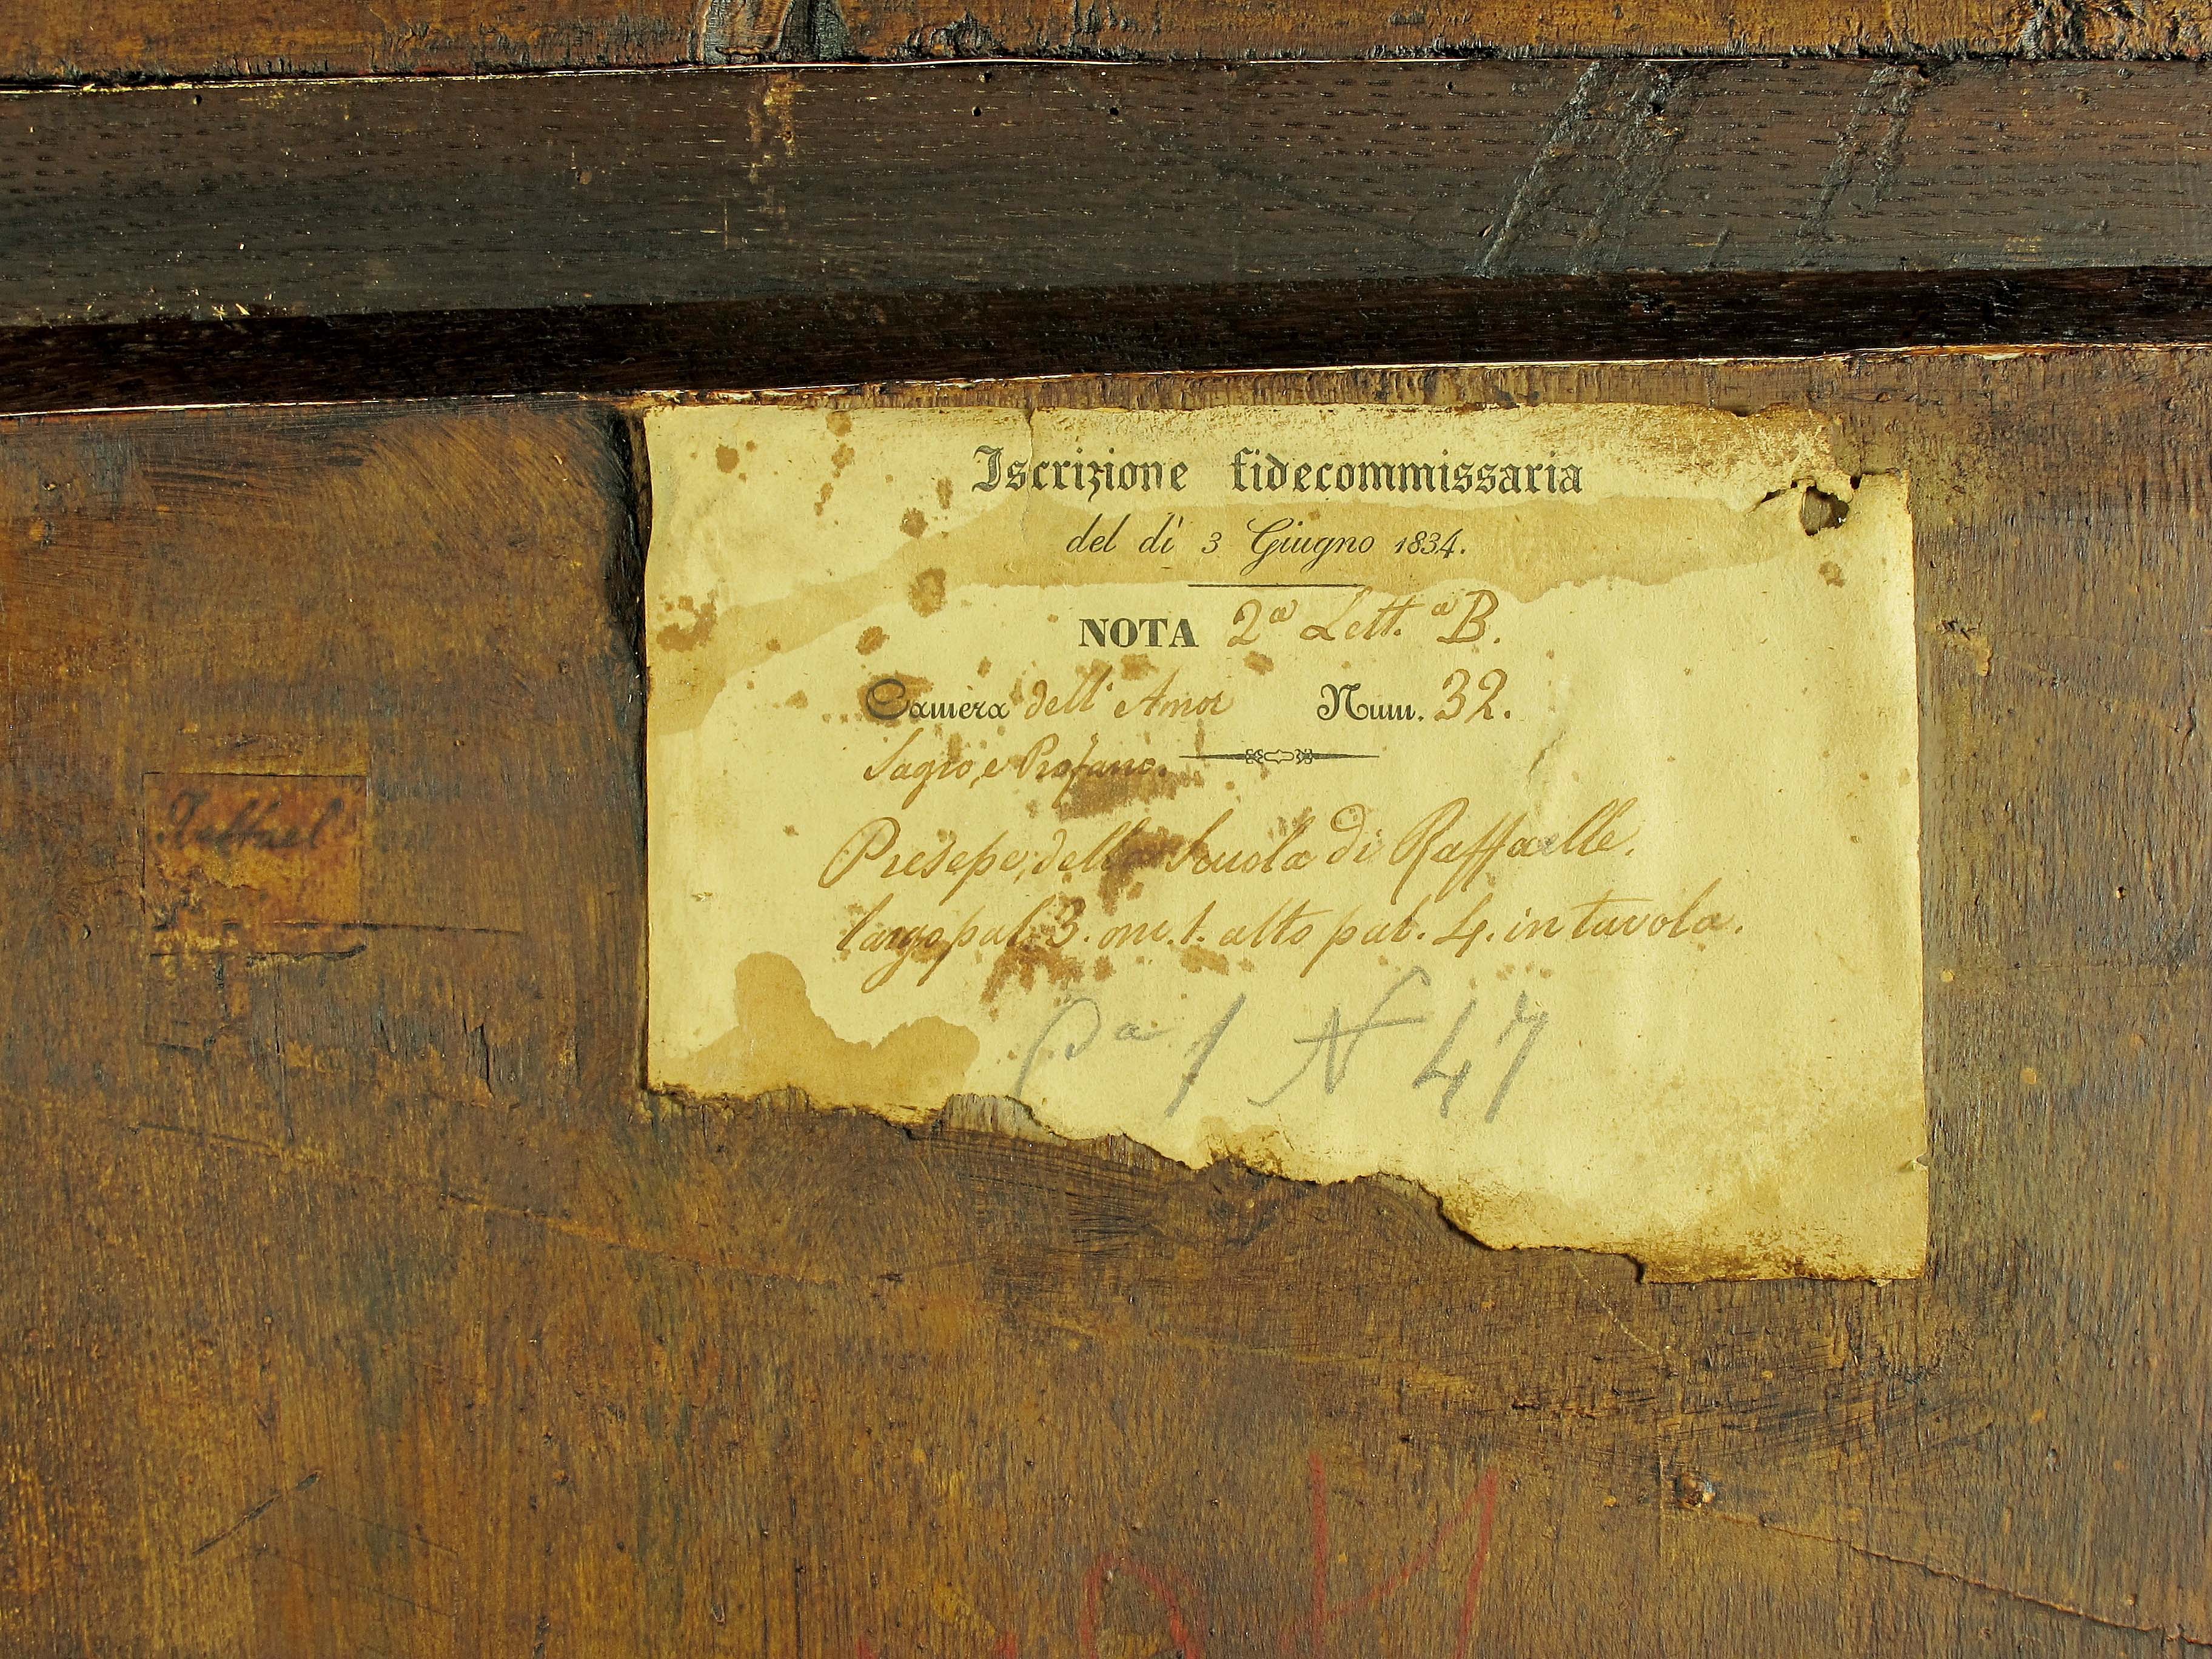 Iscrizione fidecommissaria
del dì 3 Giugno 1834.
NOTA 2a Lett.a B.
Camera dell' Amor Num. 32.
Sagro, e Profano.
Presepe, della Scuola di Raffaelle.
largo pal. 3. on. 1. alto pal. 4. in tavola.
Pa 1 N 47
Raffael